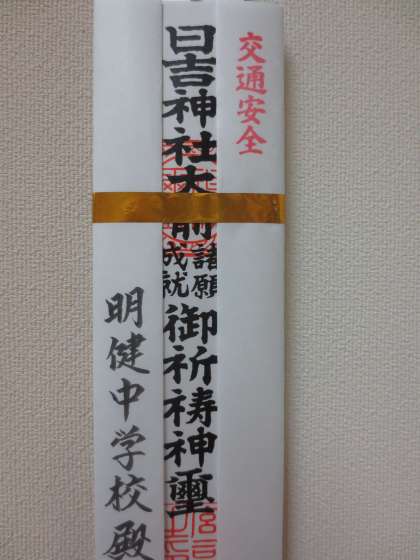 交通安全
日吉神社大前諸願成就御祈祷神璽
明健中学校殿